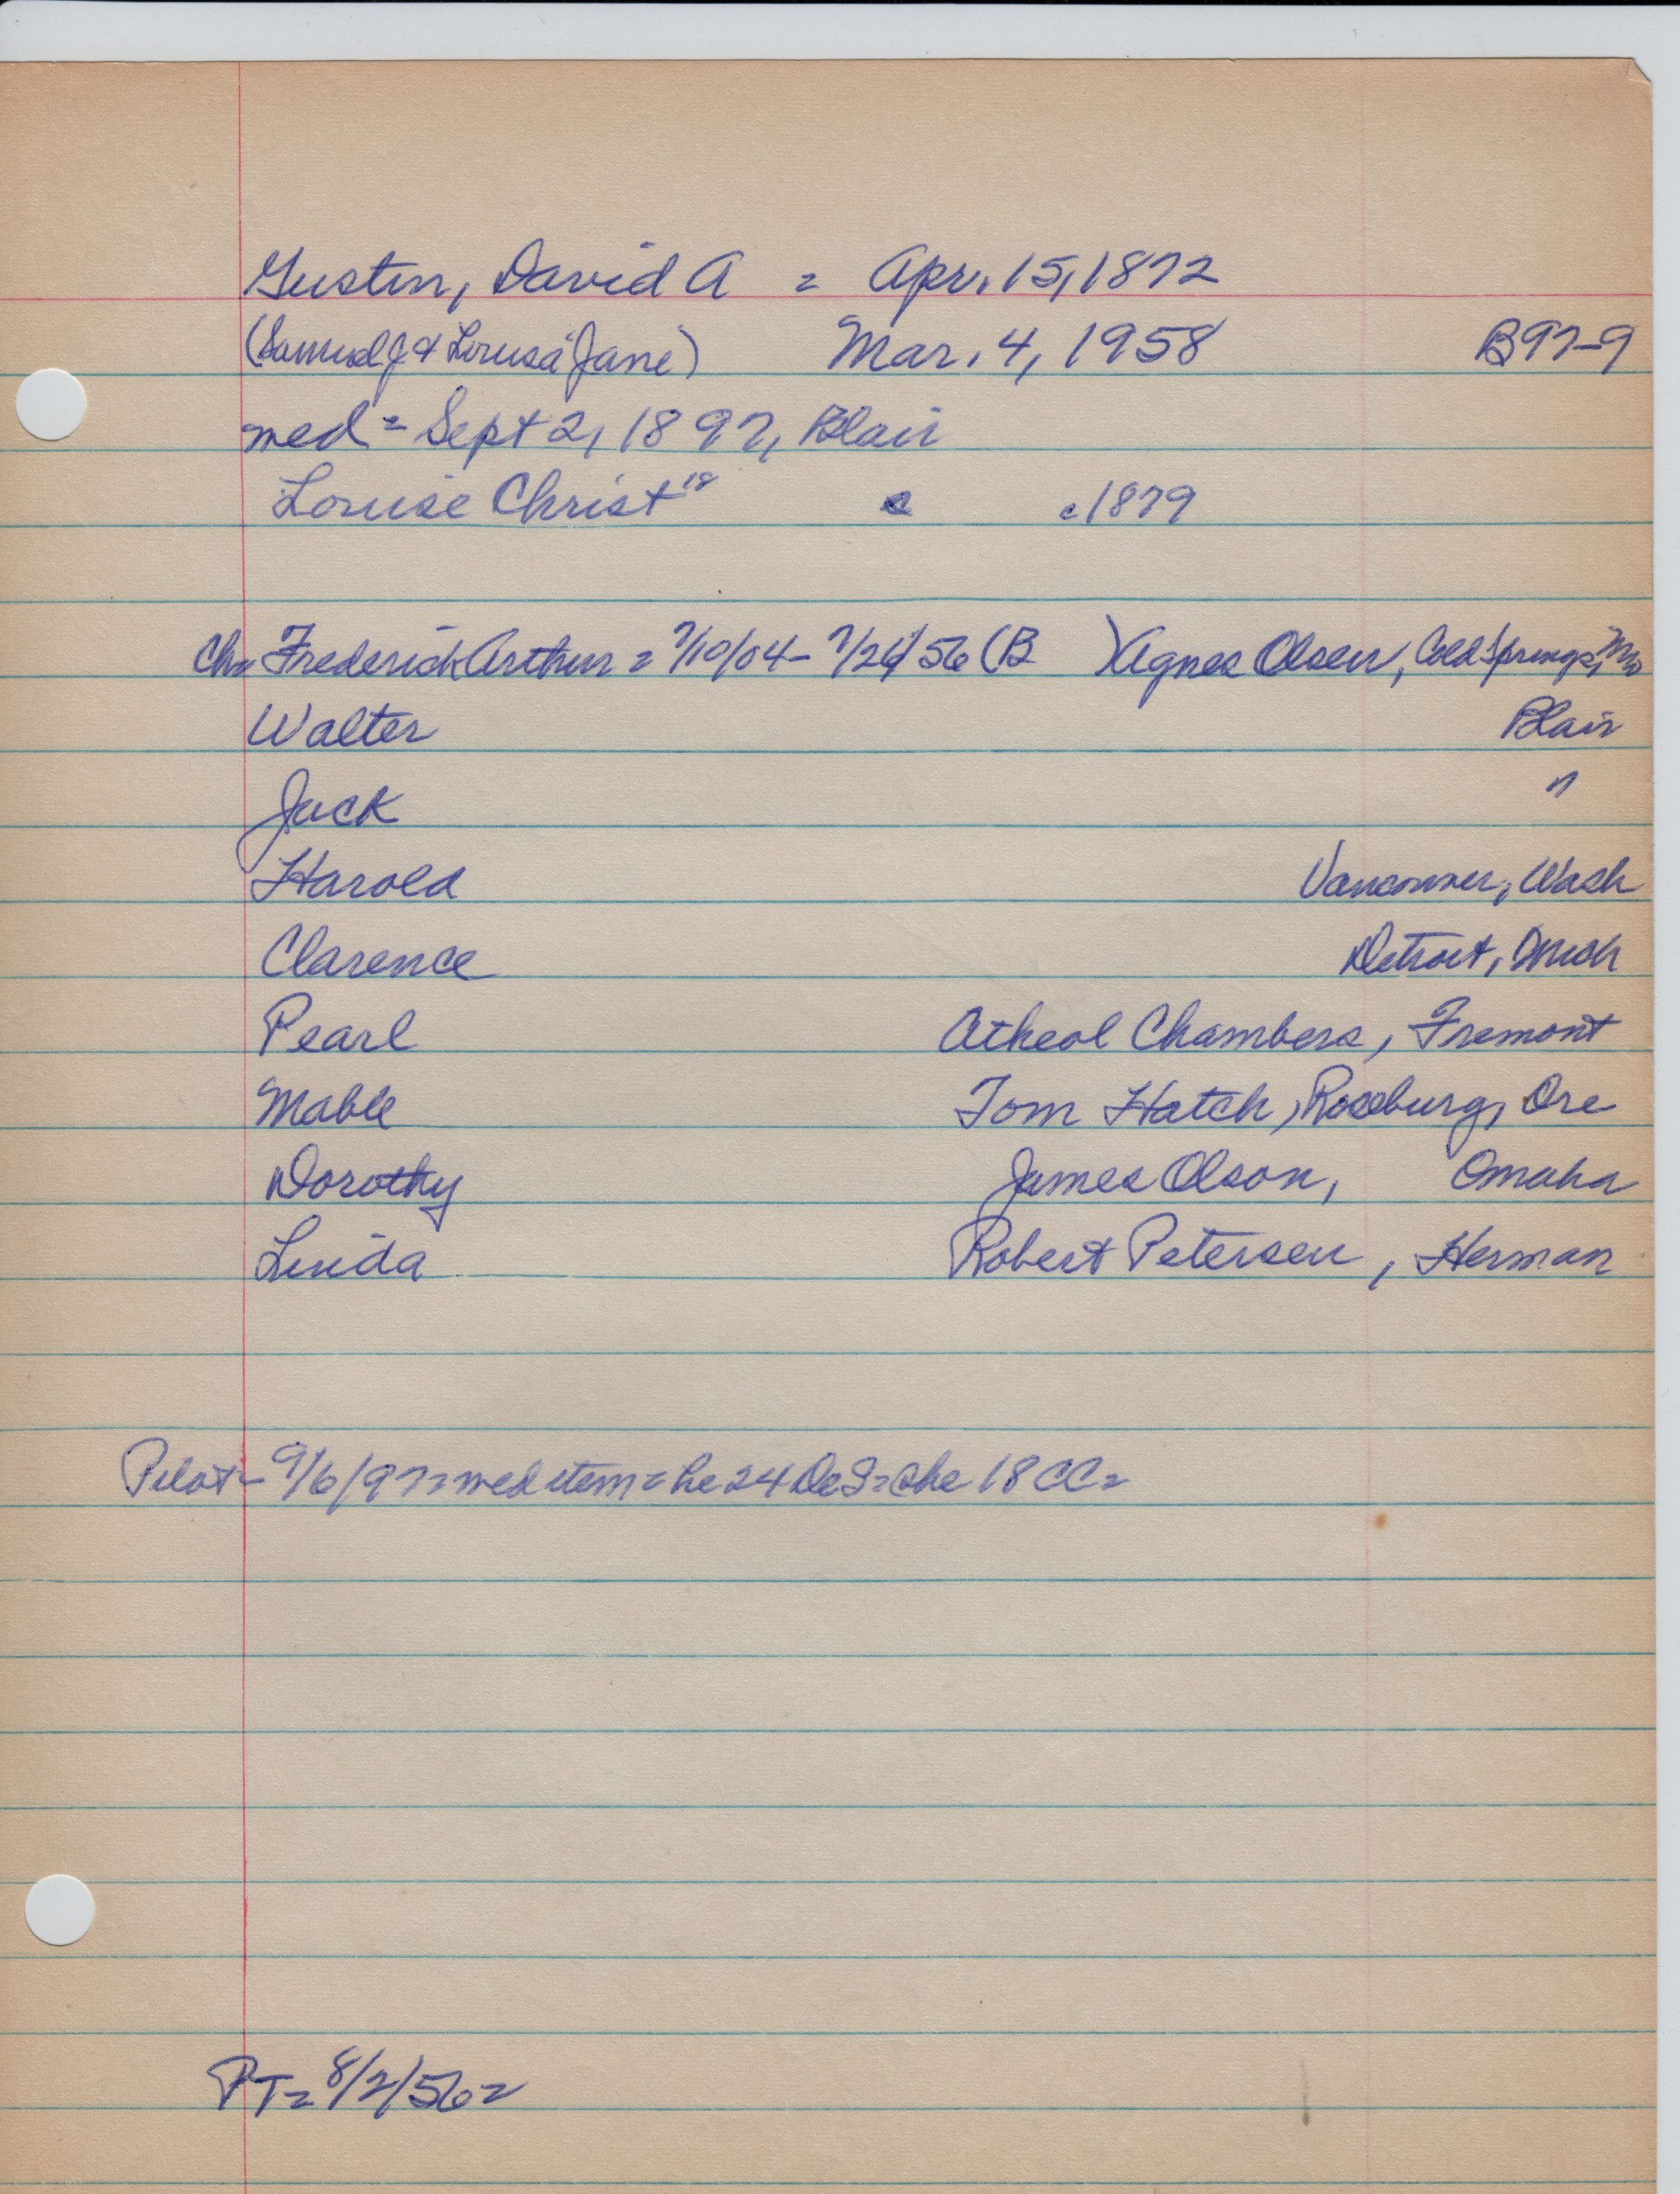 Gustin, David A = Apr. 15, 1872
(Samuel J & Louisa Jane) Mar. 4, 1958 B97-9
med = Sept 2, 1897, Blair
Louise Christ 18 c c1879
Ch= Frederick Arthur = 7/10/04 - 7/26/56 (B ) Agnes Olsen, Cold Springs, Mo
Walter Blair
Jack "
Harold Vancouver, Wash
Clarence Detroit, Mich
Pearl Atheol Chambers, Fremont
Mable Tom Hatch, Roseburg, Ore
Dorothy James Olson, Omaha
Linda Robert Petersen, Herman
Pilot - 9/6/97 = med item = he 24 = she 18 CC =
PT = 8/2/56 =